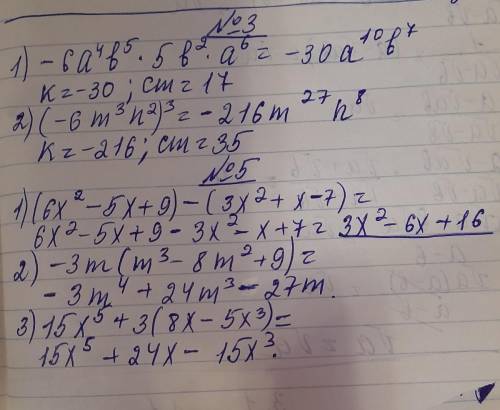 №3
1) -6a⁴b⁵ · 5b² · a⁶ = -30a¹⁰b⁷
к=-30 ; ст=17
2) (-6m³n²)³ = -216m²⁷n⁸
к=-216; ст=35
№5
1) (6x²-5x+9)-(3x²+x-7)=
6x²-5x+9-3x²-x+7= 3x²-6x+16
2) -3m(m³-8m²+9)=
-3m⁴+24m³-27m.
3) 15x⁵+3(8x-5x³)=
15x⁵+24x-15x³.